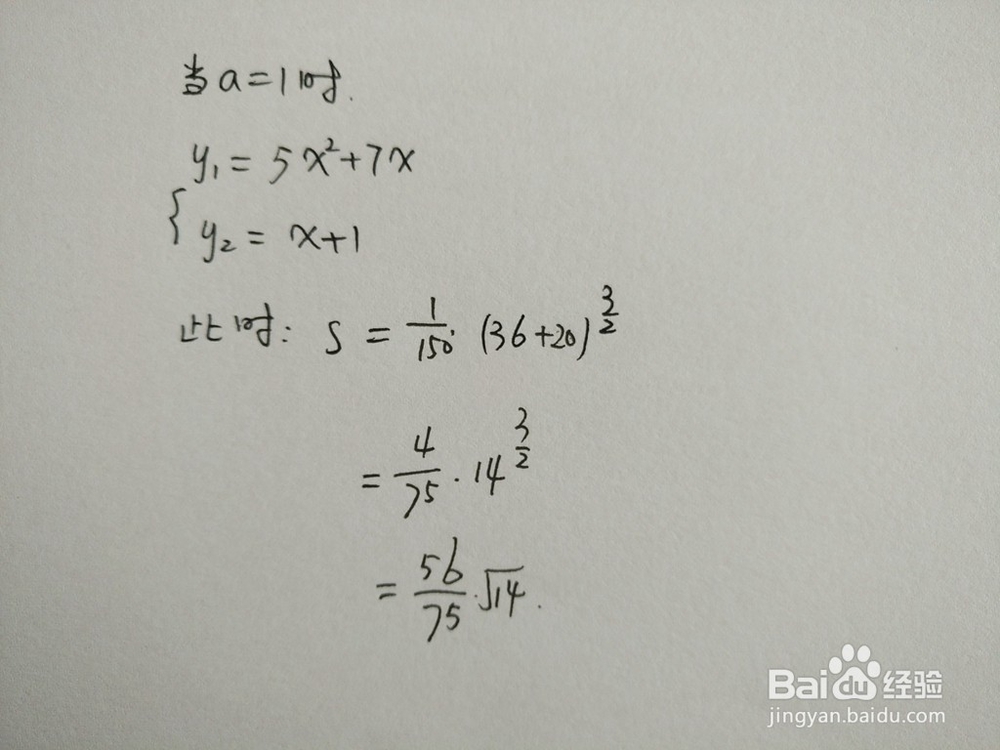 当a=1时.
y₁ = 5x²+7x
{ y₂ = x+1
此时: S = 1/150 · (36+20)^(3/2)
= 4/75 · 14^(3/2)
= 56/75 · √14.
Baidu 经验
jingyan.baidu.com